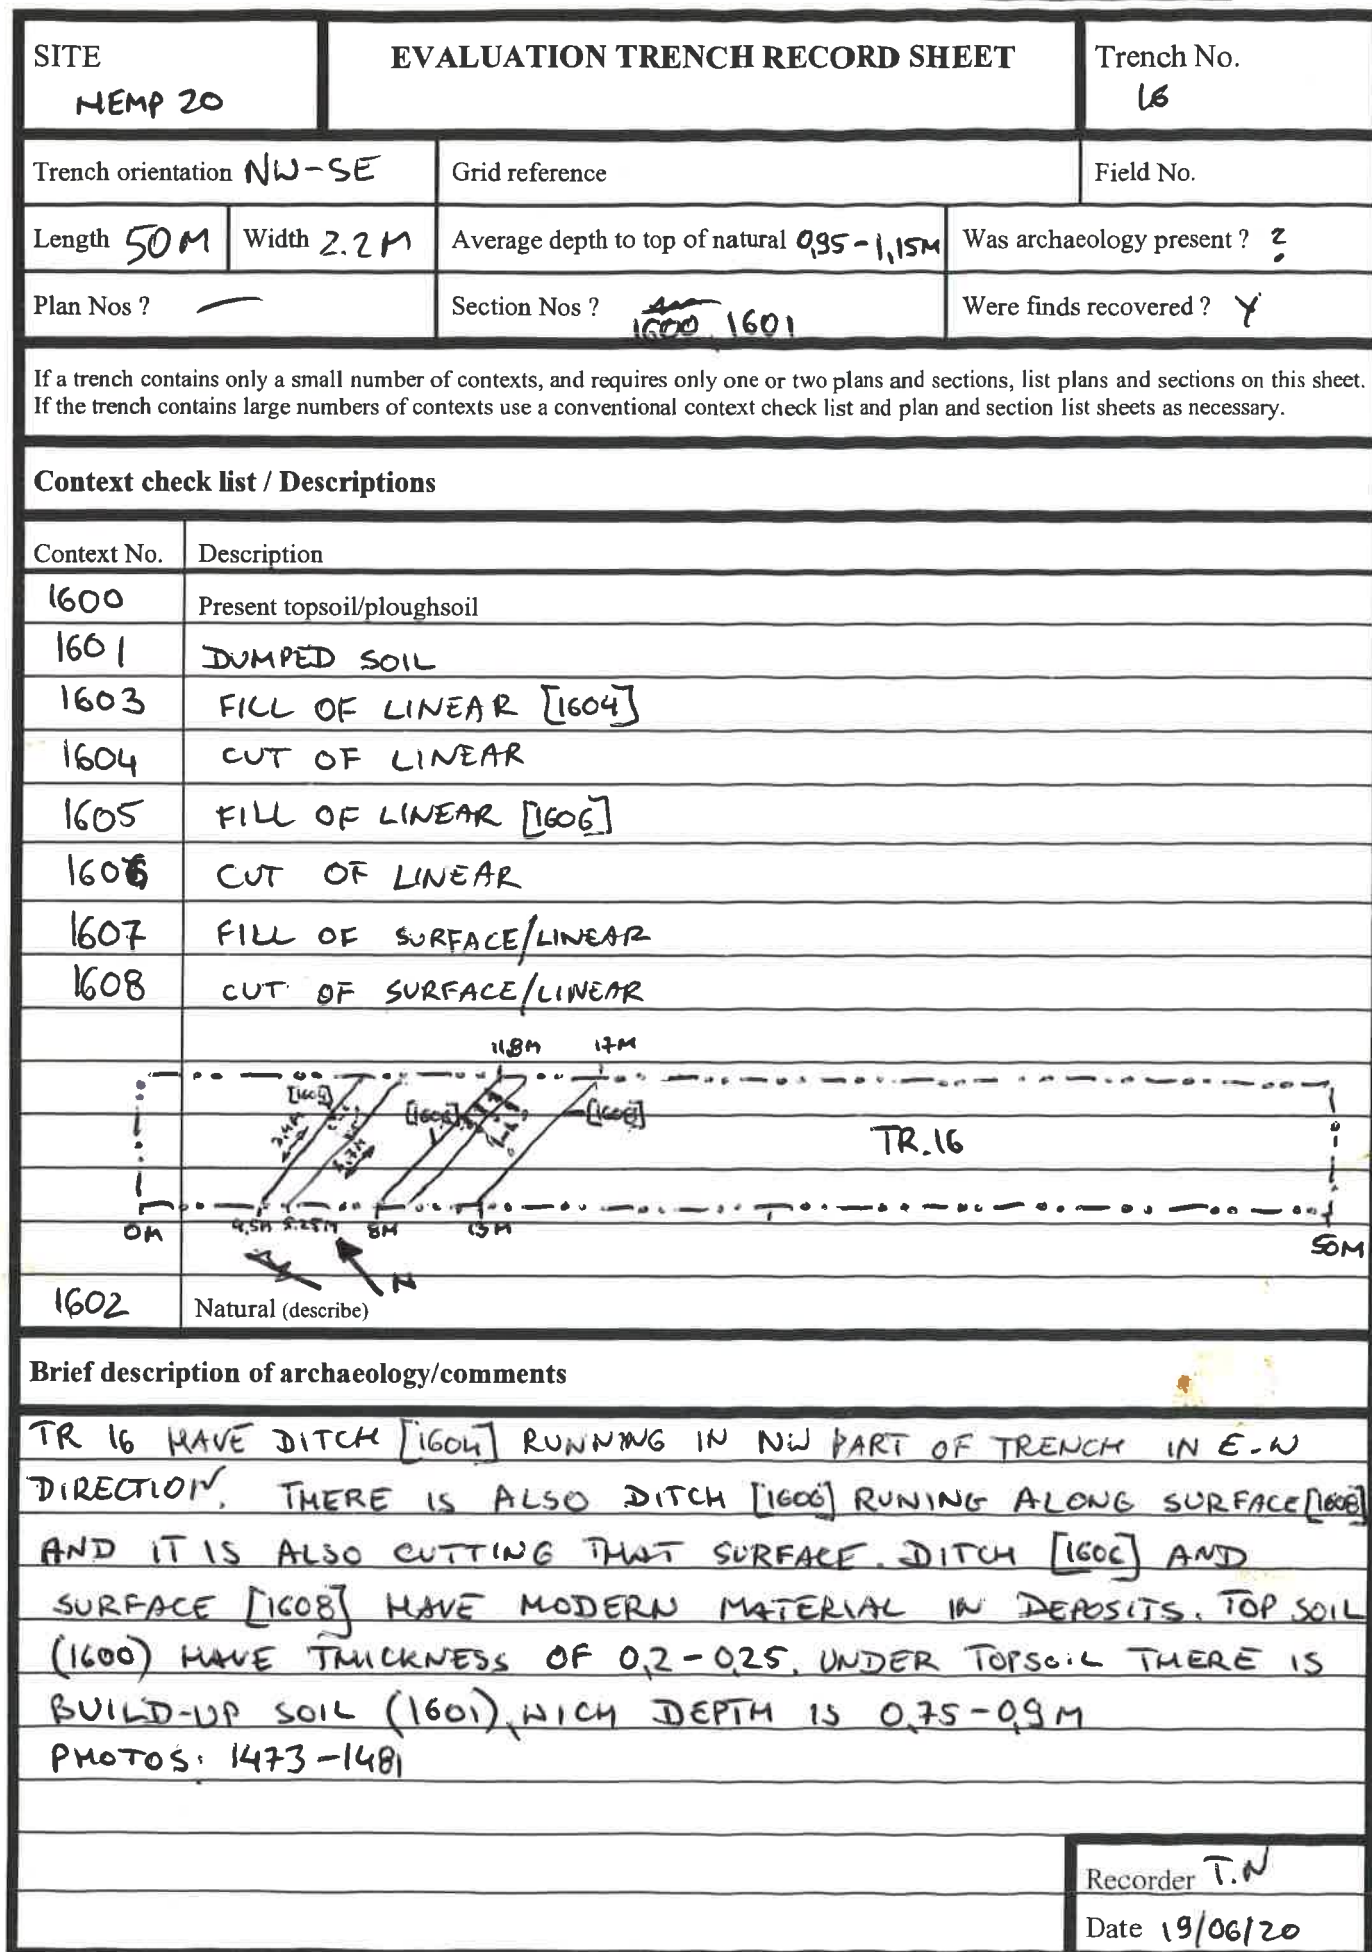 SITE
HEMP 20
EVALUATION TRENCH RECORD SHEET
Trench No.
16
Trench orientation NW-SE
Grid reference
Field No.
Length 50M
Width 2.2M
Average depth to top of natural 0,95-1,15M
Was archaeology present ? ?
Plan Nos ? —
Section Nos ? 1600, 1601
Were finds recovered ? Y
If a trench contains only a small number of contexts, and requires only one or two plans and sections, list plans and sections on this sheet.
If the trench contains large numbers of contexts use a conventional context check list and plan and section list sheets as necessary.
Context check list / Descriptions
Context No. Description
1600 Present topsoil/ploughsoil
1601 DUMPED SOIL
1603 FILL OF LINEAR [1604]
1604 CUT OF LINEAR
1605 FILL OF LINEAR [1606]
1606 CUT OF LINEAR
1607 FILL OF SURFACE/LINEAR
1608 CUT OF SURFACE/LINEAR
11,8M 17M
[1606] [1608]
TR.16
0M 4,5M 5.25M 8M 13M 50M
N
1602 Natural (describe)
Brief description of archaeology/comments
TR 16 HAVE DITCH [1604] RUNNING IN NW PART OF TRENCH IN E-W
DIRECTION. THERE IS ALSO DITCH [1606] RUNING ALONG SURFACE [1608]
AND IT IS ALSO CUTTING THAT SURFACE. DITCH [1606] AND
SURFACE [1608] HAVE MODERN MATERIAL IN DEPOSITS. TOP SOIL
(1600) HAVE THICKNESS OF 0,2-0,25. UNDER TOPSOIL THERE IS
BUILD-UP SOIL (1601), WICH DEPTH IS 0,75-0,9M
PHOTOS: 1473-1481
Recorder T.N
Date 19/06/20